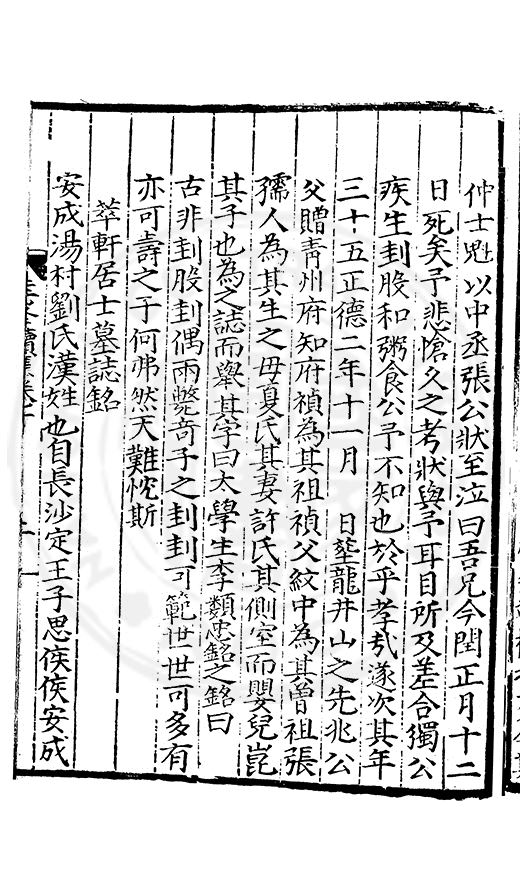 仲士魁以中丞張公狀至泣曰吾兄今閏正月十二
日死矣予悲愴久之考狀與予耳目所及差合獨公
疾生刲股和粥食公予不知也於乎孝哉遂次其年
三十五正德二年十一月　日塟龍井山之先兆公
父贈青州府知府禎為其祖禎父紋中為其曾祖張
孺人為其生之母夏氏其妻許氏其側室而嬰兒崑
其子也為之誌而舉其字曰太學生李類忠銘之銘曰
古非刲股刲偶雨斃奇子之刲刲可範世世可多有
亦可壽之于何弗然天難忱斯
萃軒居士墓誌銘
安成湯村劉氏漢姓也自長沙定王子思侯侯安成